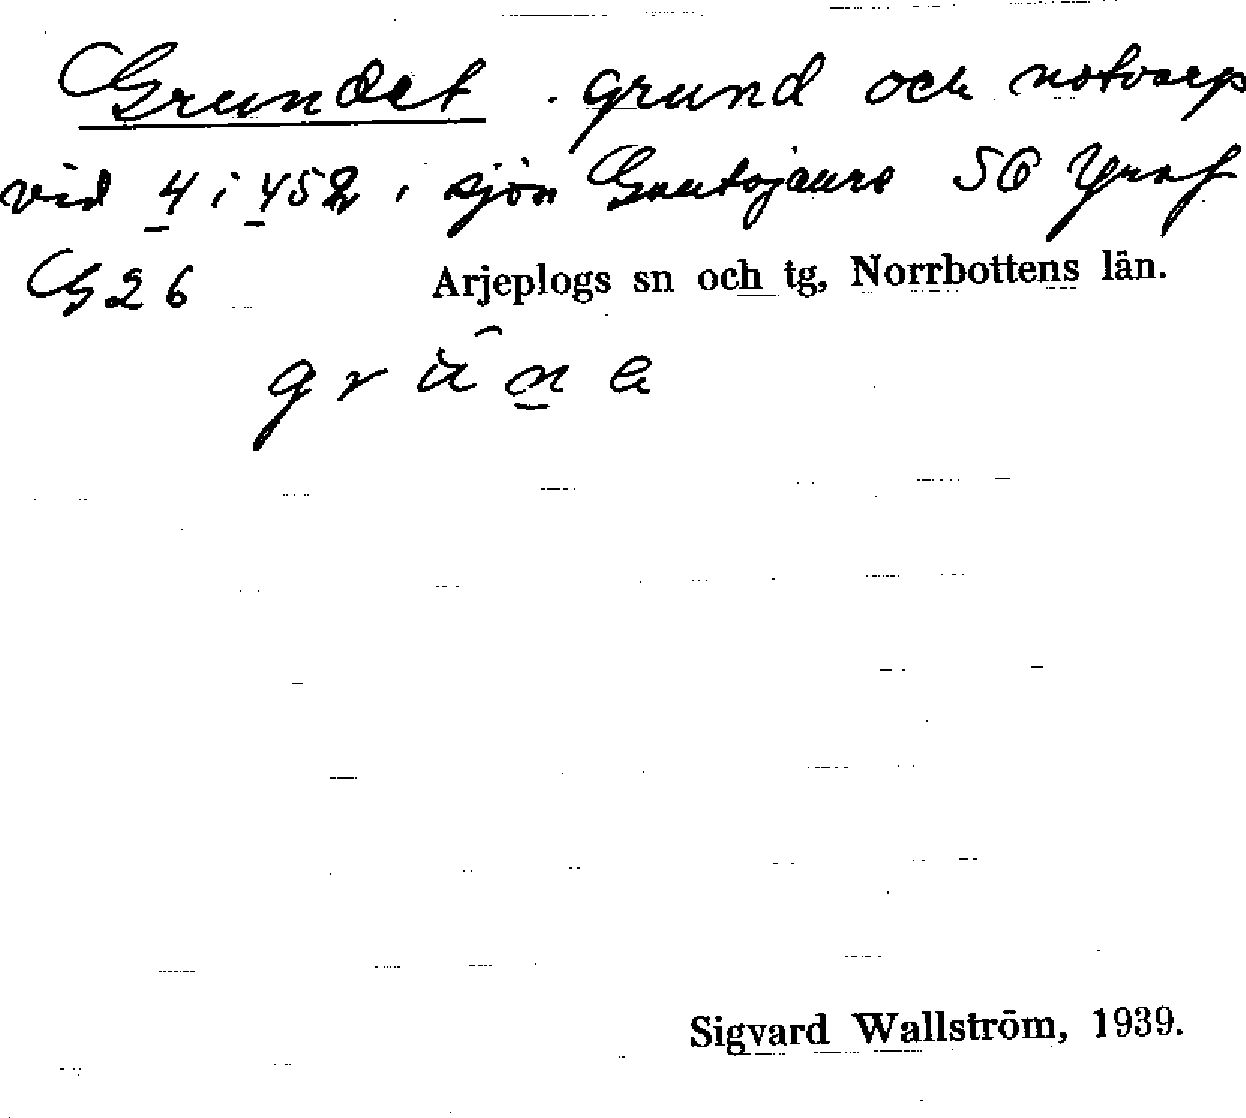 Grundet . grund och notvarp
vid 4 i 452 i sjön Gautojaure 56
G 26 Arjeplogs sn och tg, Norrbottens län.
Sigvard Wallström, 1939.